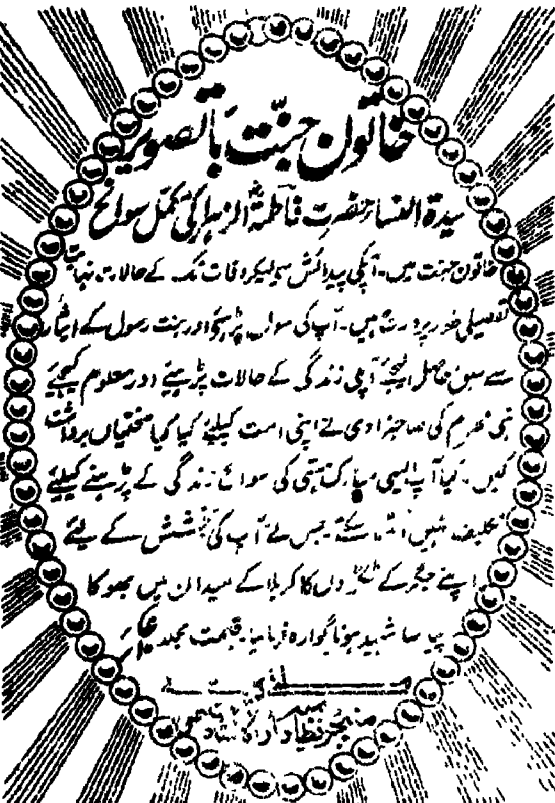 خاتون جنت باتصویر
سیدۃ النساء حضرت فاطمۃ الزہرا کی مکمل سوانح
خاتون جنت میں۔ آپکی پیدائش سے لیکر وفات تک کے حالات نہایت
تفصیلی طور پر درج ہیں۔ آپ کی سوانح پڑہیے اور بنت رسول کے ایثار
سے سبق حاصل کیجئے آپکی زندگی کے حالات پڑہیئے اور معلوم کیجئے
نبی کی صاحبزادی نے اپنی امت کیلئے کیا کیا سختیاں برداشت
کیں۔ کیا آپ ایسی مبارک ہستی کی سوانح زندگی کے پڑہنے کیلئے
تکلیف نہیں اٹھا سکتے جس نے آپ کی بخشش کے لئے
اپنے جگر کے ٹکڑوں کا کربلا کے میدان میں بھوکا
پیاسا شہید ہونا گوارہ فرمایا۔ قیمت مجلد
ملنے کا پتہ
منیجر نظامی